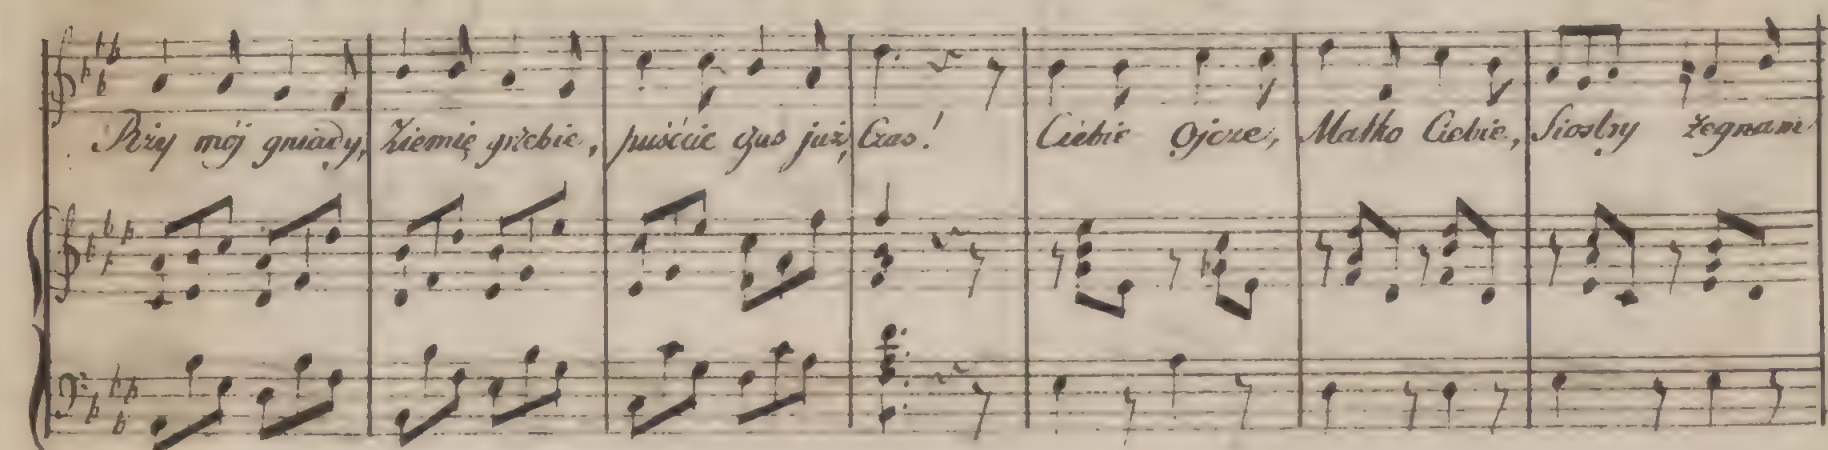 Rży mój gniady, Ziemię grzebie, puśćcie czas już Czas! Ciebie Ojcze, Matko Ciebie, Siostry żegnam